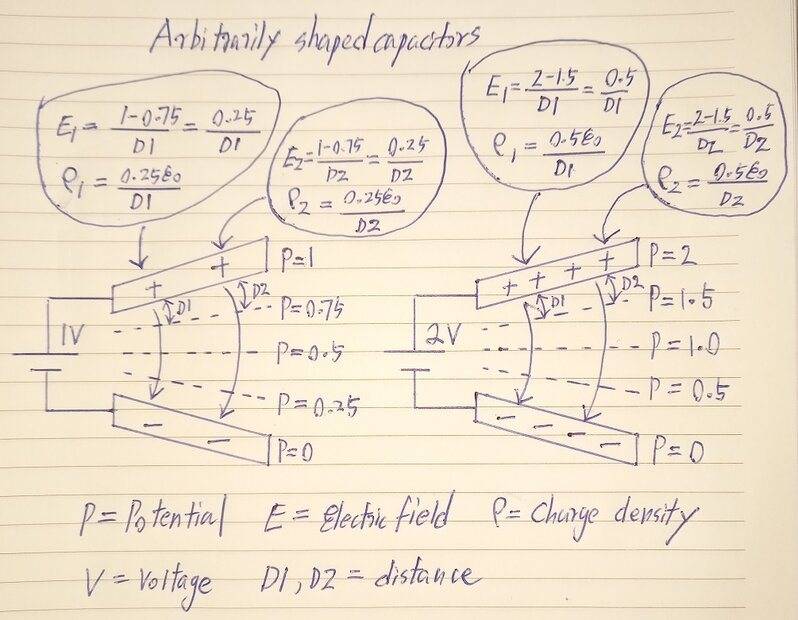 Arbitrarily shaped capacitors
E1 = 1-0.75/D1 = 0.25/D1
ρ1 = 0.25ε0/D1
E2 = 1-0.75/D2 = 0.25/D2
ρ2 = 0.25ε0/D2
E1 = 2-1.5/D1 = 0.5/D1
ρ1 = 0.5ε0/D1
E2 = 2-1.5/D2 = 0.5/D2
ρ2 = 0.5ε0/D2
+ +
P=1
D1 D2
P=0.75
1V
P=0.5
P=0.25
- -
P=0
+ + + +
P=2
D1 D2
P=1.5
2V
P=1.0
P=0.5
- - - -
P=0
P = Potential E = Electric field ρ = Charge density
V = Voltage D1, D2 = distance